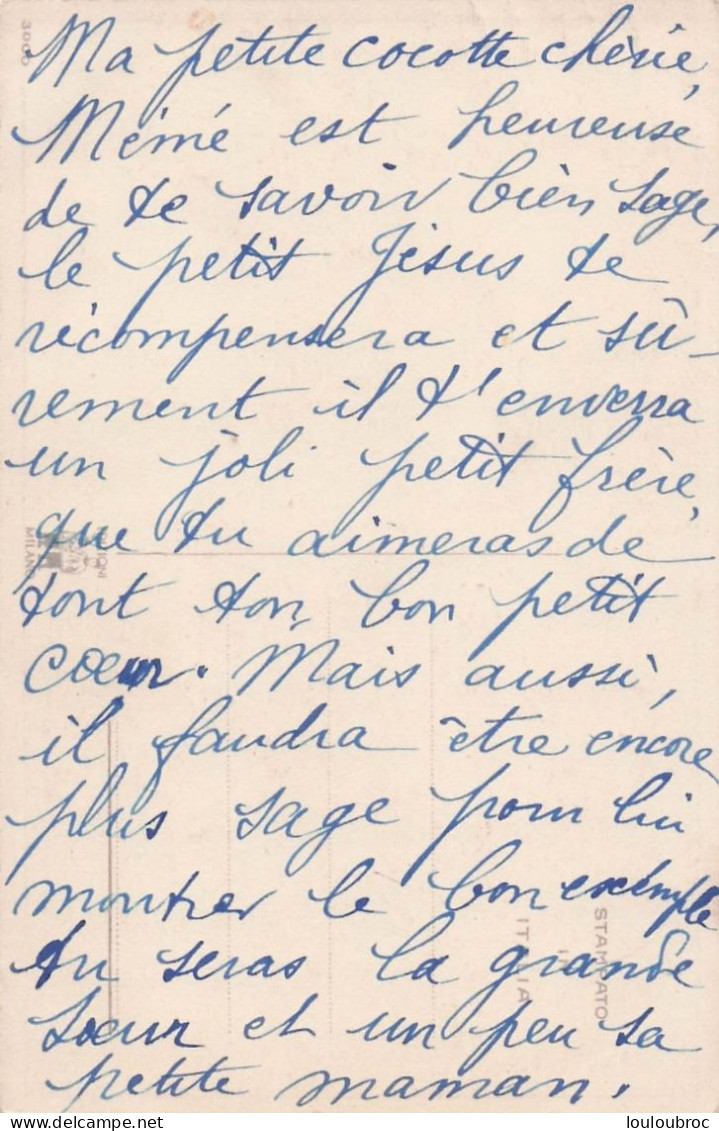 Ma petite cocotte chérie,
Mémé est heureuse
de te savoir bien sage,
le petit Jésus te
récompensera et sû-
rement il t'enverra
un joli petit frère,
que tu aimeras de
tout ton bon petit
cœur. Mais aussi,
il faudra être encore
plus sage pour lui
montrer le bon exemple
tu seras la grande
sœur et un peu sa
petite maman.
3000
MILANO
STAMPATO
IN
ITALIA
louloubroc